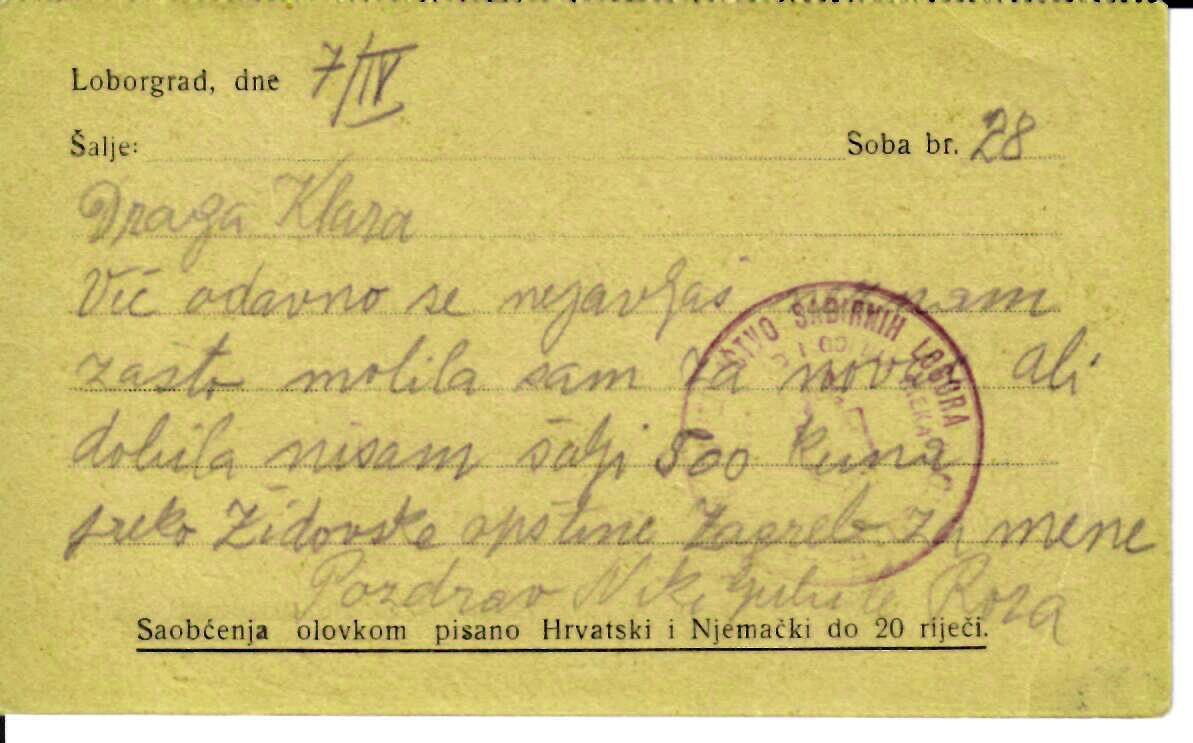 Loborgrad, dne 7/IV
Šalje: Soba br. 28
Draga Klara
Već odavno se nejavljaš neznam
zašto molila sam za novac ali
dobila nisam šalji 500 kuna
preko Židovske opštine Zagreb za mene
Pozdrav Roza
SABIRNIH LOGORA
Saobćenja olovkom pisano Hrvatski i Njemački do 20 riječi.